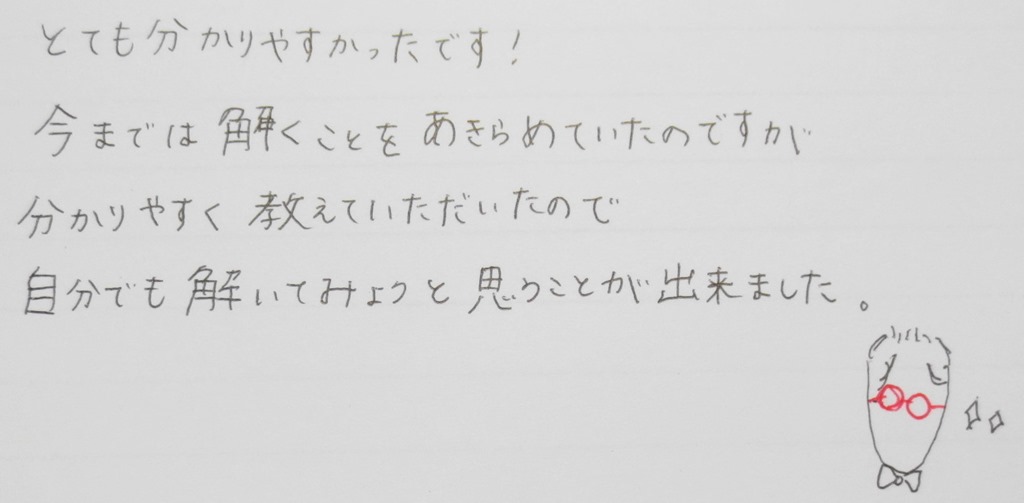 とても分かりやすかったです!
今までは解くことをあきらめていたのですが
分かりやすく教えていただいたので
自分でも解いてみようと思うことが出来ました。